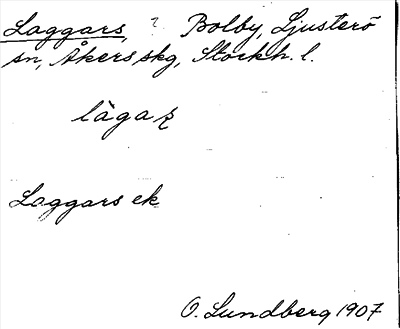 Laggars, ? Bolby, Ljusterö
sn, Åkers skg, Stockh. l.
Laggars ek
O. Lundberg 1907